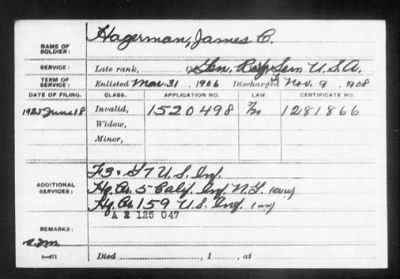 NAME OF SOLDIER: Hagerman, James C.
SERVICE: Late rank, Gen. Serv U.S.A.
TERM OF SERVICE: Enlisted Mar. 31, 1906 Discharged Nov. 9, 1908
DATE OF FILING. CLASS. APPLICATION NO. LAW. CERTIFICATE NO.
1925 June 18 Invalid, 1520498 1281866
Widow,
Minor,
ADDITIONAL SERVICES: F3 & G7 U.S. Inf.
Hq. Co. 5 Calif. Inf. N.G. (WW)
Hq. Co. 159 U.S. Inf. (WW)
A 2 125 047
REMARKS:
Died , 1 , at